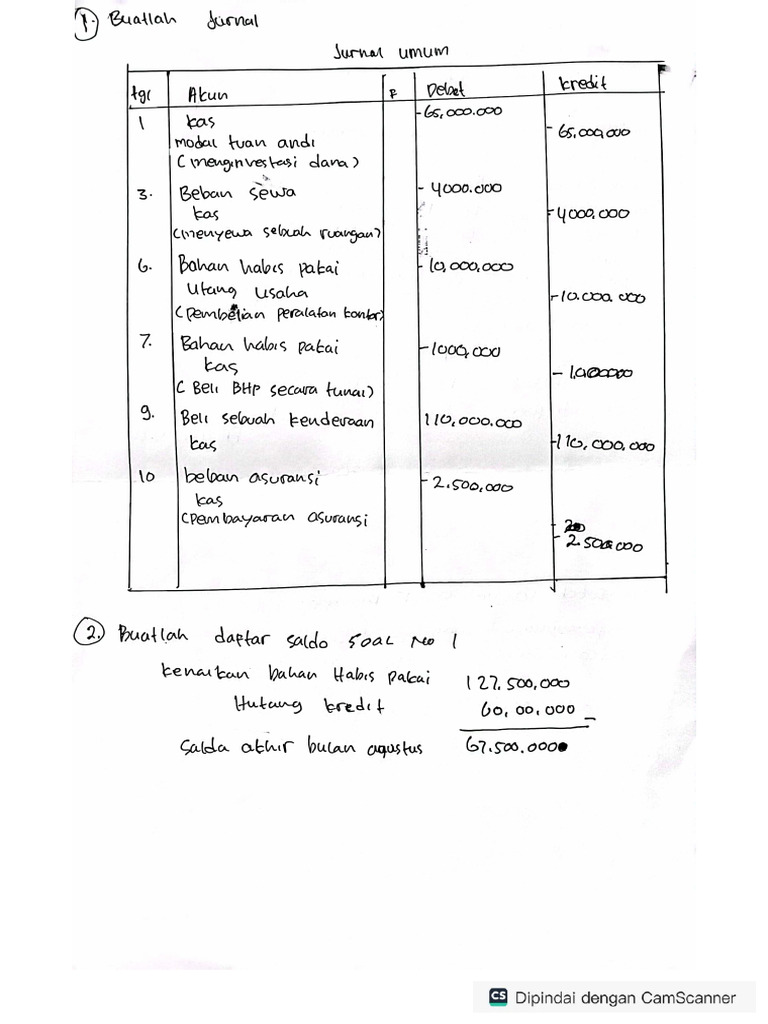 1. Buatlah Jurnal
Jurnal umum
tgl Akun F Debet kredit
1 kas -65,000.000
modal tuan andi -65,000,000
(menginvestasi dana)
3. Beban sewa - 4000.000
kas -4000,000
(menyewa sebuah ruangan)
6. Bahan habis pakai -10,000,000
Utang usaha -10.000.000
(pembelian peralatan kantor)
7. Bahan habis pakai -1000,000
kas
( Beli BHP secara tunai)
9. Beli sebuah kenderaan 110,000.000
kas -110,000,000
10 beban asuransi - 2.500,000
kas
(pembayaran asuransi
- 2.500.000
2. Buatlah daftar saldo soal No 1
kenaikan bahan Habis pakai 127.500,000
Hutang kredit 60,00,000 -
Saldo akhir bulan agustus 67.500.000
CS Dipindai dengan CamScanner